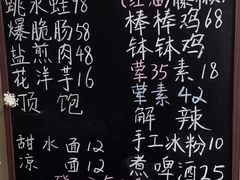 跳水蛙98
爆脆肠58
盐煎肉48
花洋芋16
顶饱
甜水面12
凉面12
棒棒鸡68
钵钵鸡
荤35素18
荤素42
解辣
手工冰粉10
煮啤酒25